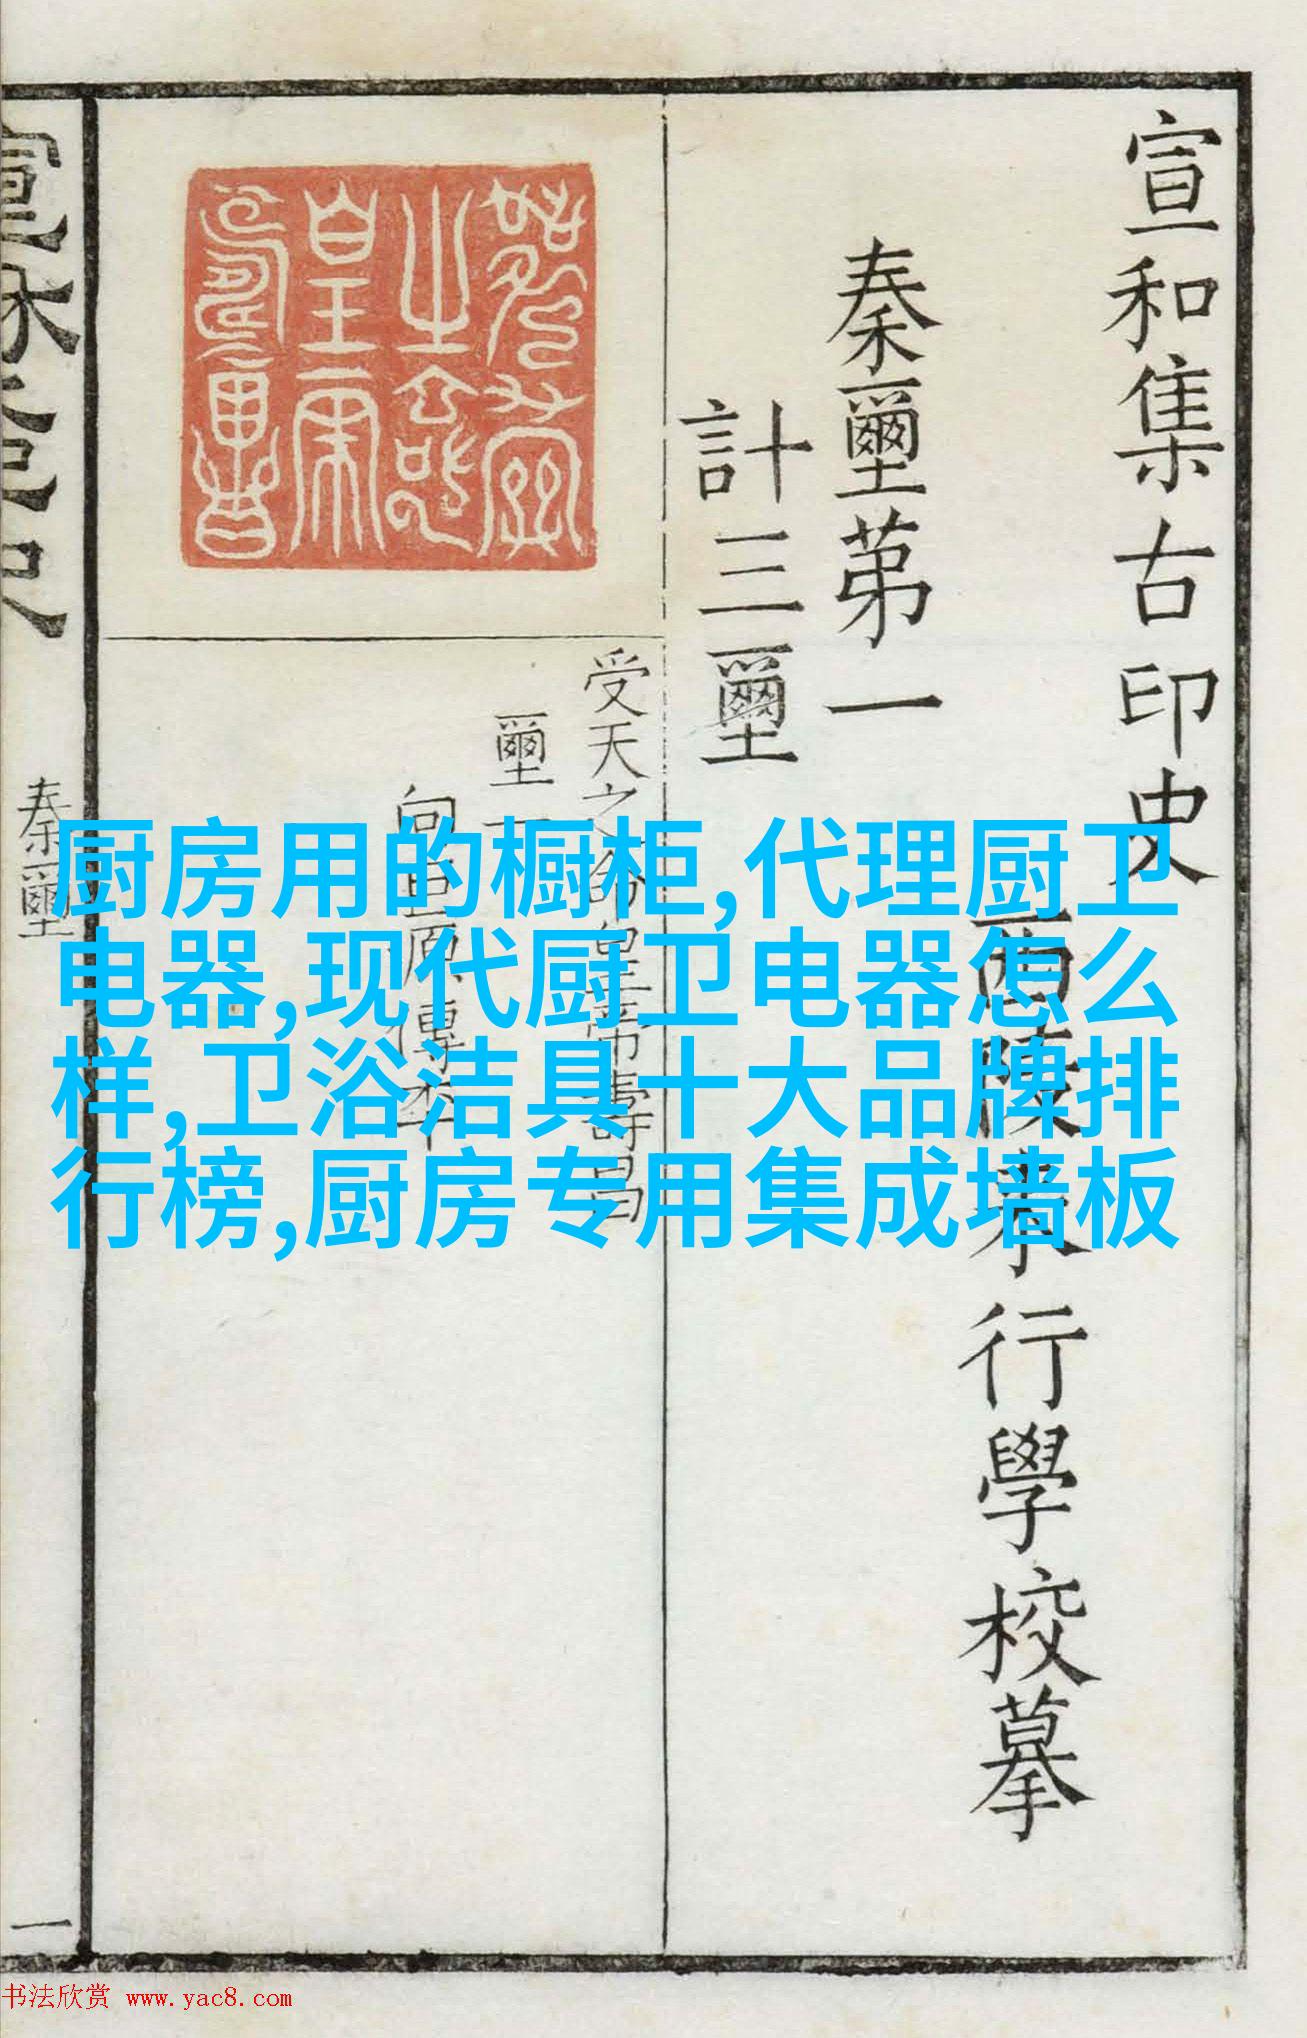 宣和集古印史
西陵來行學校摹
秦璽第一
計三璽
受天之命皇帝壽昌
璽一
向巨源傳本
秦璽
一
厨房用的橱柜,代理厨卫
电器,现代厨卫电器怎么
样,卫浴洁具十大品牌排
行榜,厨房专用集成墙板
书法欣赏 www.yac8.com